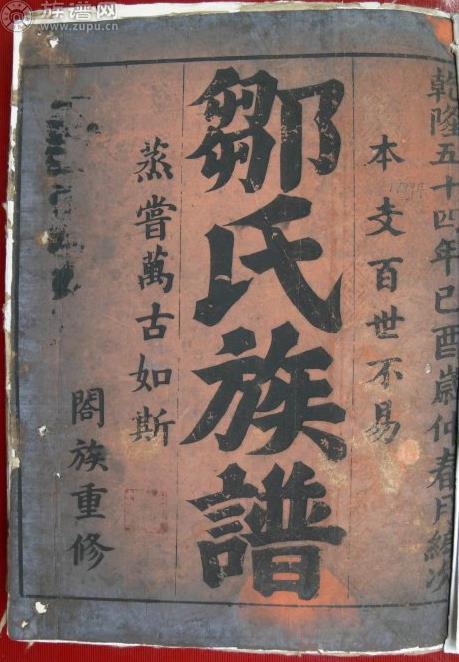 乾隆五十四年己酉歲仲春月編次
本支百世不易
鄒氏族譜
蒸嘗萬古如斯
閤族重修
族谱网
www.zupu.cn